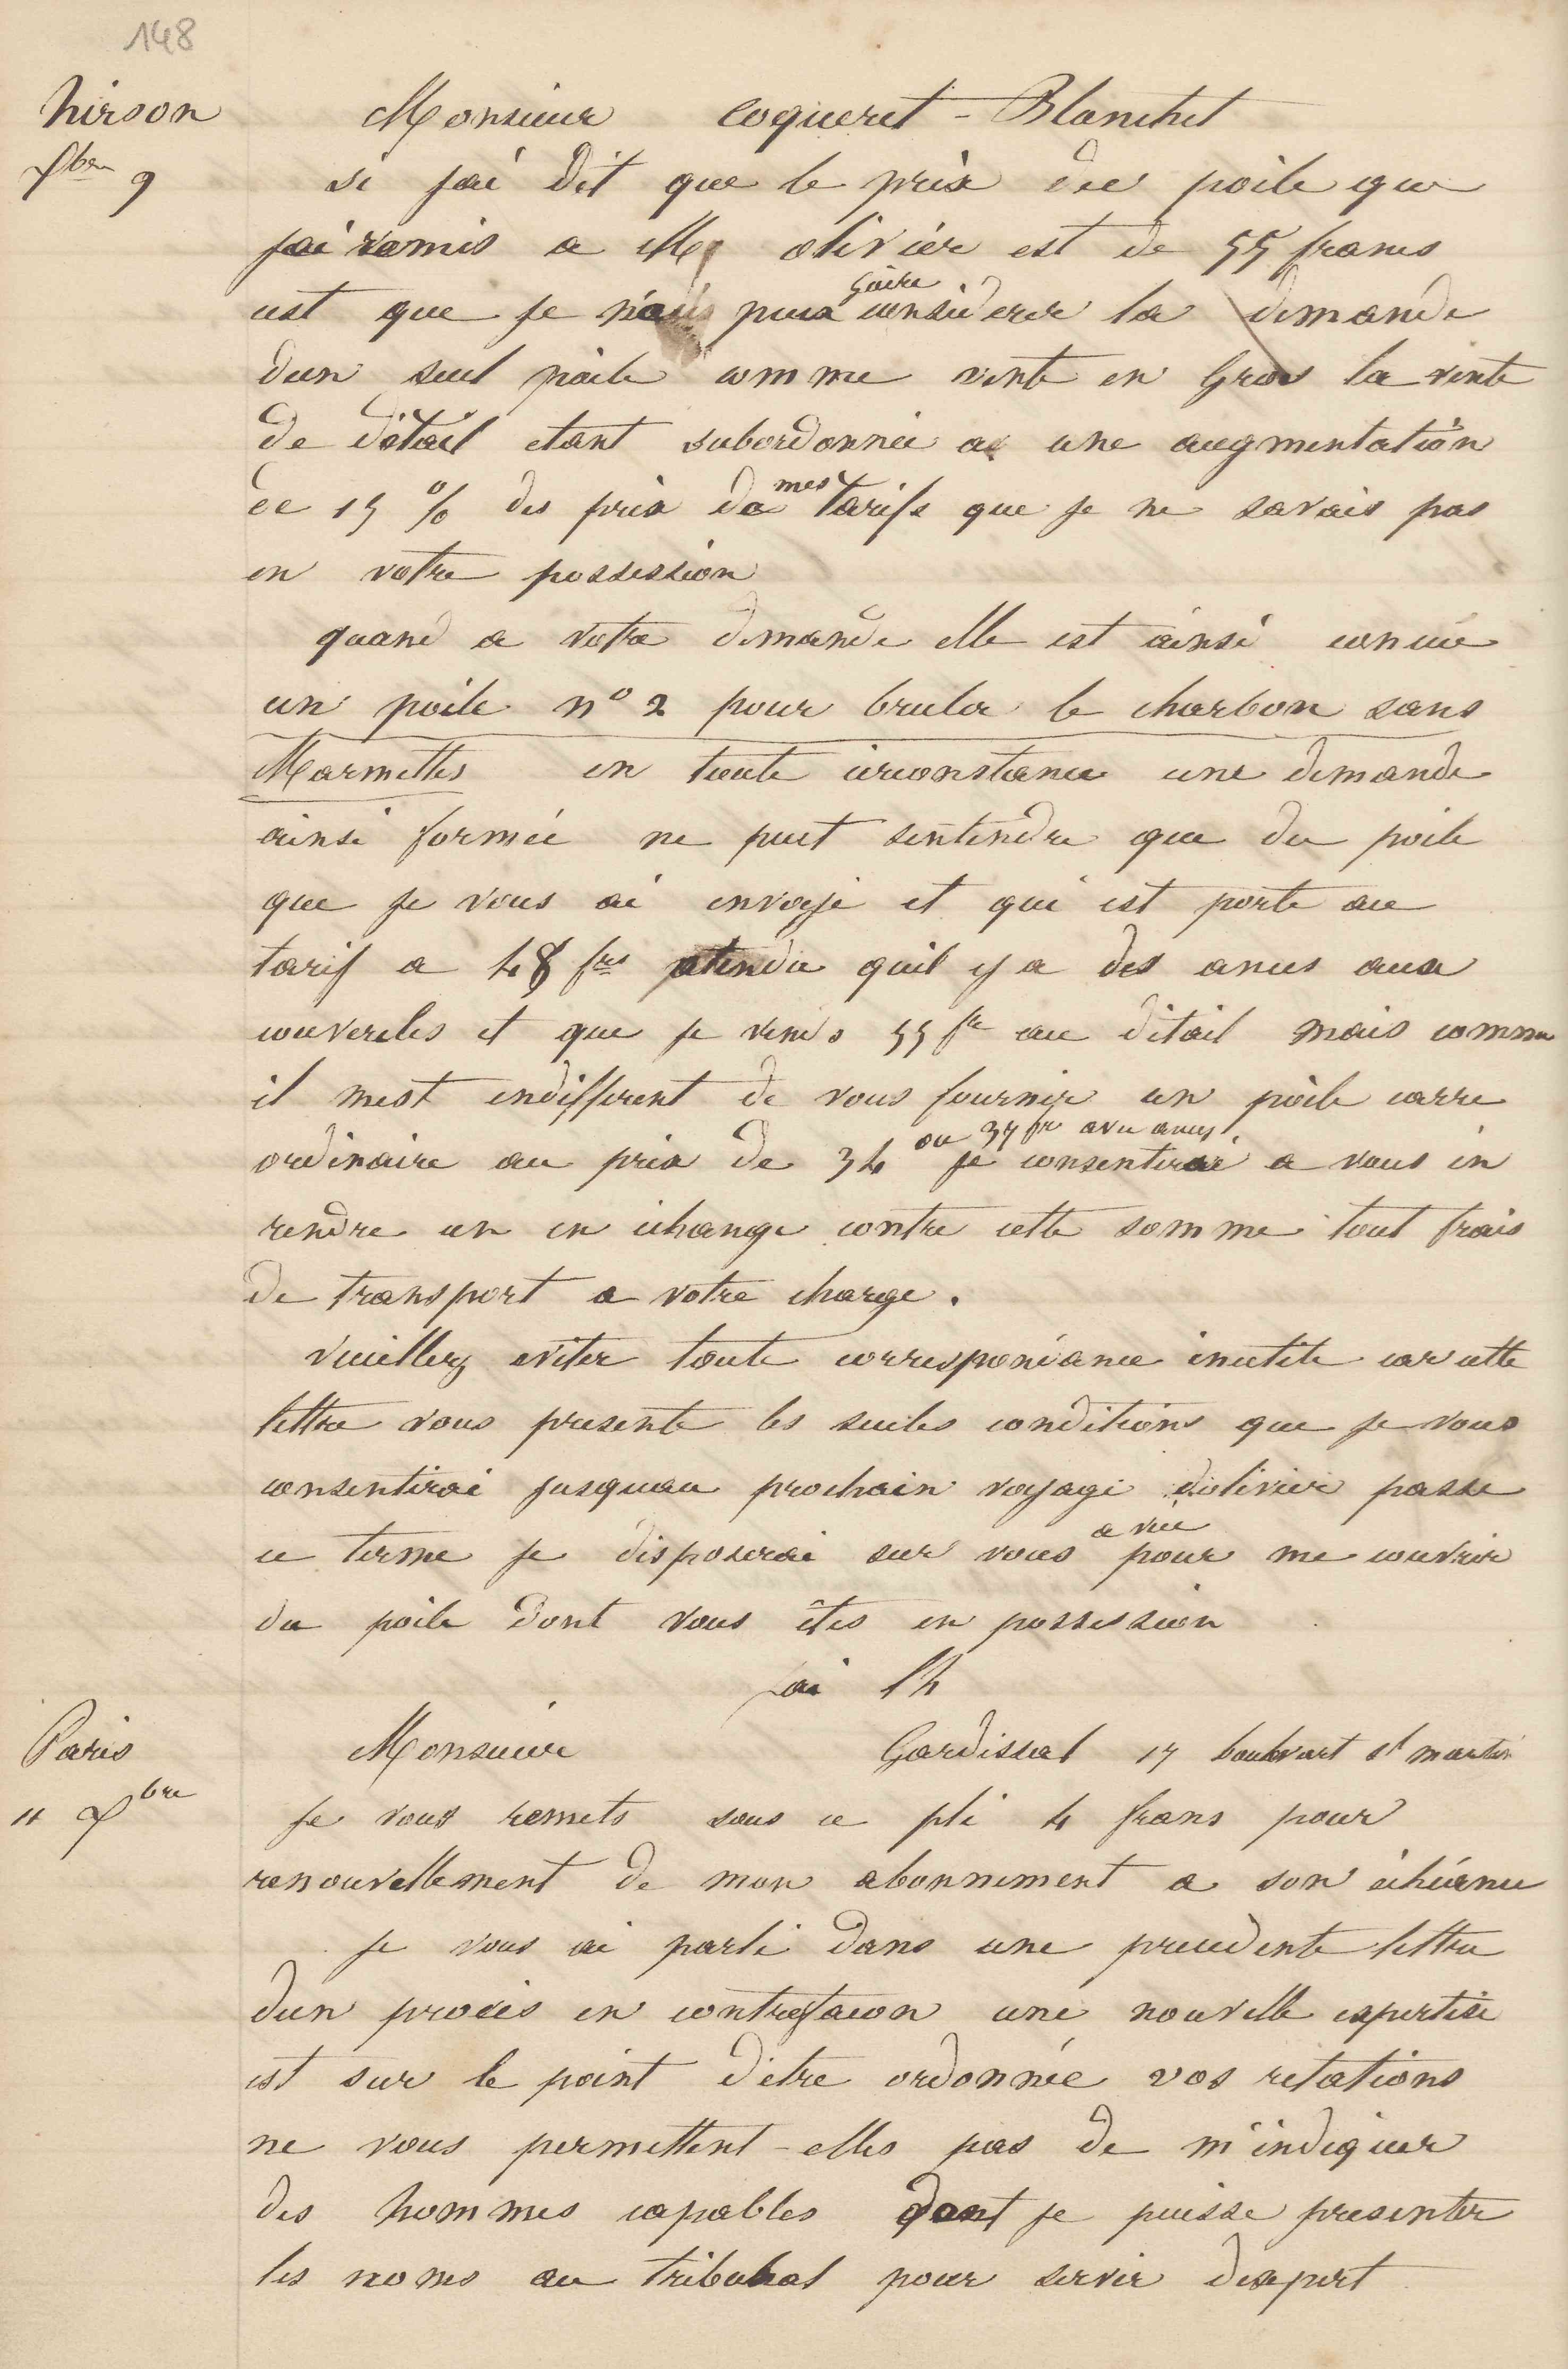 148
hirson
Xbre 9
Monsieur Coqueret - Blanchet
si jai dit que le prix du poile que
jai remis a Mr olivier est de 55 francs
cest que je puux gaire considerer la demande
dun seul poile comme vente en Gros la vente
de détail etant subordonnée a une augmentation
de 15 % des prix de mes tarifs que je ne savais pas
en votre possession
quand a votre demande elle est ainsi concue
un poile no 2 pour bruler le charbon sans
Marmittes en toute circonstance une demande
ainsi formée ne peut sentendre que du poile
que je vous ai envoyé et qui est porte au
tarif a 48 frs atendu quil y a des ances aux
couvercles et que je vends 55 fr au détail mais comme
il mest indifferent de vous fournir un poile carre
ordinaire au prix de 34 ou 35 fr avec ances je consentirai a vous en
rendre un en echange contre cette somme tout frais
de transport a votre charge.
Veuillez eviter toute correspondance inutile car cette
lettre vous presente les seules conditions que je vous
consentirai jusquau prochain voyage dolivier passe
ce terme je disposerai sur vous a vue pour me couvrir
du poile dont vous êtes en possession
jai lh
Paris
11 Xbre
Monsieur Gardissal 17 boulevart st martin
Je vous remets sous ce pli 4 frans pour
renouvellement de mon abonnement a son echéance
Je vous ai parlé dans une precedente lettre
dun procès en contrefacon une nouvelle expertise
est sur le point d'etre ordonnée vos relations
ne vous permettent-elles pas de m'indiquer
des hommes capables dont je puisse presenter
les noms au tribunal pour servir dexpert